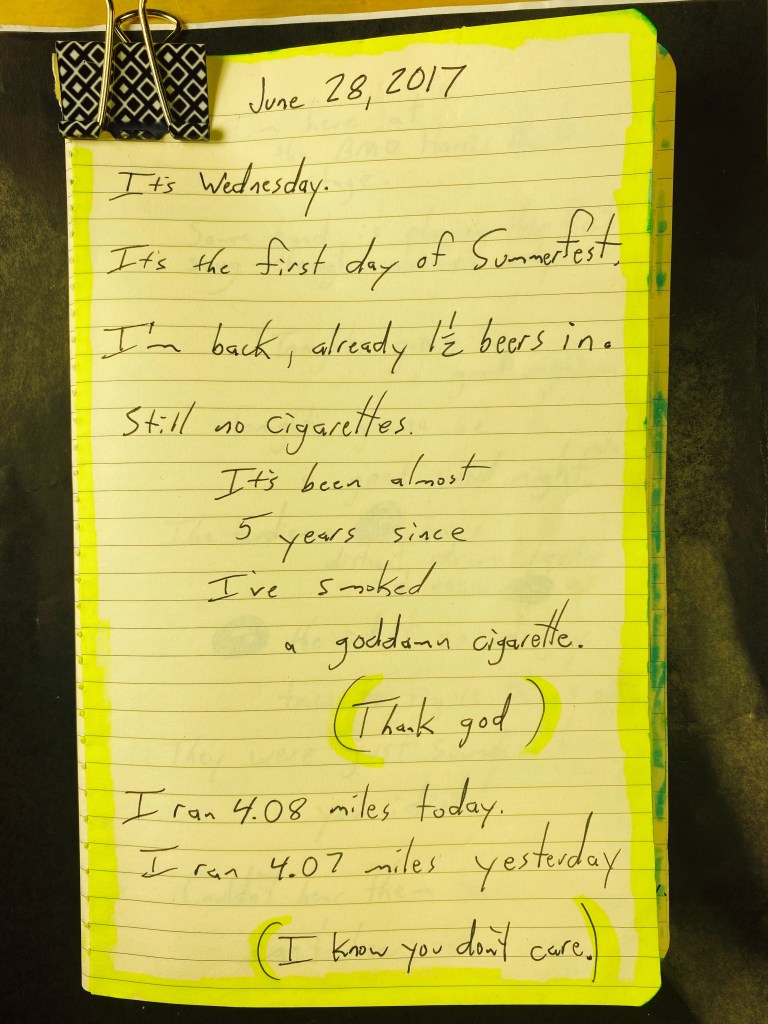 June 28, 2017
It's Wednesday.
It's the first day of Summerfest.
I'm back, already 1½ beers in.
Still no cigarettes.
It's been almost
5 years since
I've smoked
a goddamn cigarette.
(Thank god)
I ran 4.08 miles today.
I ran 4.07 miles yesterday
(I know you don't care.)